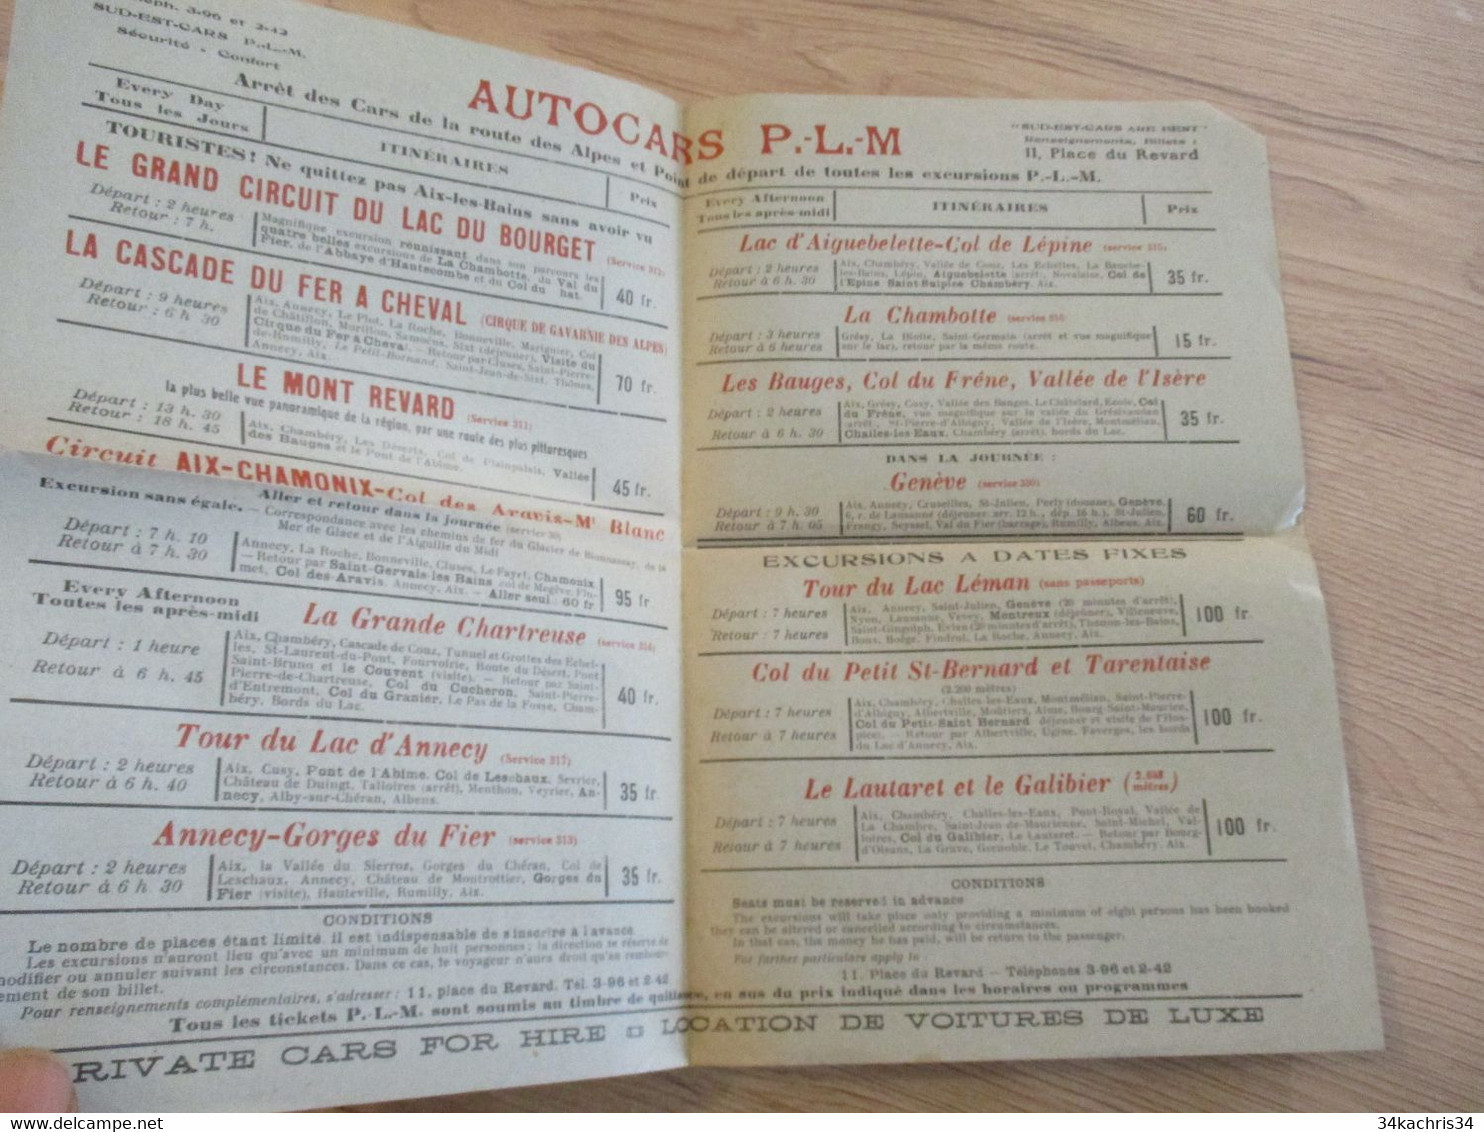 3-96 et 2-42
SUD-EST-CARS P.-L.-M.
Sécurité - Confort
AUTOCARS P.-L.-M
"SUD-EST-CARS ARE BEST"
Renseignements, Billets :
11, Place du Revard
Arrêt des Cars de la route des Alpes et Point de départ de toutes les excursions P.-L.-M.
Every Day
Tous les Jours
ITINÉRAIRES
Prix
TOURISTES! Ne quittez pas Aix-les-Bains sans avoir vu
LE GRAND CIRCUIT DU LAC DU BOURGET (Service 312)
Départ : 2 heures
Retour : 7 h.
Magnifique excursion réunissant dans son parcours les
quatre belles excursions de La Chambotte, du Val du
Fier, de l'Abbaye d'Hautecombe et du Col du Chat.
40 fr.
LA CASCADE DU FER A CHEVAL (CIRQUE DE GAVARNIE DES ALPES)
Départ : 9 heures
Retour : 6 h 30
Aix, Annecy, Le Plot, La Roche, Bonneville, Marignier, Col
de Châtillon, Morillon, Samoëns, Sixt (déjeuner), Visite du
Cirque du Fer à Cheval. — Retour par Cluses, Saint-Pierre-
de-Rumilly, Le Petit-Bornand, Saint-Jean-de-Sixt, Thônes,
Annecy, Aix
70 fr.
LE MONT REVARD (Service 311)
la plus belle vue panoramique de la région, par une route des plus pittoresques
Départ : 13 h. 30
Retour : 18 h. 45
Aix, Chambéry, Les Déserts, Col de Plainpalais, Vallée
des Bauges et le Pont de l'Abîme.
45 fr.
Circuit AIX-CHAMONIX-Col des Aravis-Mt Blanc
Excursion sans égale. — Aller et retour dans la journée (service 30)
Correspondance avec les chemins de fer du Glacier de Bionnassay, de la
Mer de Glace et de l'Aiguille du Midi
Départ : 7 h. 10
Retour à 7 h. 30
Annecy, La Roche, Bonneville, Cluses, Le Fayet, Chamonix
— Retour par Saint-Gervais-les Bains, col de Megève, Flu-
met, Col des Aravis, Annecy, Aix. — Aller seul : 60 fr
95 fr
Every Afternoon
Toutes les après-midi
La Grande Chartreuse (service 314)
Départ : 1 heure
Retour à 6 h. 45
Aix, Chambéry, Cascade de Couz, Tunnel et Grottes des Echel-
les, St-Laurent-du-Pont, Fourvoirie, Route du Désert, Pont
Saint-Bruno et le Couvent (visite). — Retour par Saint-
Pierre-de-Chartreuse, Col du Cucheron, Saint-Pierre-
d'Entremont, Col du Granier, Le Pas de la Fosse, Cham-
béry, Bords du Lac.
40 fr.
Tour du Lac d'Annecy (Service 317)
Départ : 2 heures
Retour à 6 h. 40
Aix, Cusy, Pont de l'Abîme, Col de Leschaux, Sevrier,
Château de Duingt, Talloires (arrêt), Menthon, Veyrier, An-
necy, Alby-sur-Chéran, Albens.
35 fr
Annecy-Gorges du Fier (service 313)
Départ : 2 heures
Retour à 6 h. 30
Aix, la Vallée du Sierroz, Gorges du Chéran, Col de
Leschaux, Annecy, Château de Montrottier, Gorges du
Fier (visite), Hauteville, Rumilly, Aix.
35 fr.
CONDITIONS
Le nombre de places étant limité, il est indispensable de s'inscrire à l'avance
Les excursions n'auront lieu qu'avec un minimum de huit personnes ; la direction se réserve de
modifier ou annuler suivant les circonstances. Dans ce cas, le voyageur n'aura droit qu'au rembour-
sement de son billet.
Pour renseignements complémentaires, s'adresser : 11, place du Revard. Tél. 3-96 et 2-42
Every Afternoon
Tous les après-midi
ITINÉRAIRES
Prix
Lac d'Aiguebelette-Col de Lépine (service 315)
Départ : 2 heures
Retour à 6 h. 30
Aix, Chambéry, Vallée de Couz, Les Echelles, La Bauche-
les-Bains, Lépin, Aiguebelette (arrêt), Novalaise, Col de
l'Epine Saint-Sulpice Chambéry, Aix.
35 fr.
La Chambotte (service 351)
Départ : 3 heures
Retour à 6 heures
Grésy, La Biolle, Saint-Germain (arrêt et vue magnifique
sur le lac), retour par la même route.
15 fr.
Les Bauges, Col du Frêne, Vallée de l'Isère
Départ : 2 heures
Retour à 6 h. 30
Aix, Grésy, Cusy, Vallée des Bauges, Le Châtelard, Ecole, Col
du Frêne, vue magnifique sur la vallée du Grésivaudan
(arrêt), St-Pierre-d'Albigny, Vallée de l'Isère, Montmélian,
Challes-les-Eaux, Chambéry (arrêt), bords du Lac.
35 fr.
DANS LA JOURNÉE :
Genève (service 320)
Départ : 9 h. 30
Retour à 7 h. 05
Aix, Annecy, Cruseilles, St-Julien, Perly (douane), Genève
6, r. de Lausanne (déjeuner, arr. 12 h., dép. 16 h.), St-Julien,
Frangy, Seyssel, Val du Fier (barrage), Rumilly, Albens, Aix.
60 fr.
EXCURSIONS A DATES FIXES
Tour du Lac Léman (sans passeports)
Départ : 7 heures
Retour : 7 heures
Aix, Annecy, Saint-Julien, Genève (20 minutes d'arrêt),
Nyon, Lausanne, Vevey, Montreux (déjeuner), Villeneuve,
Saint-Gingolph, Evian (20 minutes d'arrêt), Thonon-les-Bains,
Bons, Boëge, Findrol, La Roche, Annecy, Aix.
100 fr.
Col du Petit St-Bernard et Tarentaise
(2.200 mètres)
Départ : 7 heures
Retour à 7 heures
Aix, Chambéry, Challes-les-Eaux, Montmélian, Saint-Pierre-
d'Albigny, Albertville, Moûtiers, Aime, Bourg Saint-Maurice,
Col du Petit-Saint Bernard déjeuner et visite de l'Hos-
pice). - Retour par Albertville, Ugine, Faverges, les bords
du Lac d'Annecy, Aix.
100 fr.
Le Lautaret et le Galibier (2.658 mètres)
Départ : 7 heures
Retour à 7 heures
Aix, Chambéry, Challes-les-Eaux, Pont-Royal, Vallée de
La Chambre, Saint-Jean-de-Maurienne, Saint-Michel, Val-
loires, Col du Galibier, Le Lautaret. — Retour par Bourg-
d'Oisans, La Grave, Grenoble, Le Touvet, Chambéry, Aix.
100 fr.
CONDITIONS
Seats must be reserved in advance
The excursions will take place only providing a minimum of eight persons has been booked
they can be altered or cancelled according to circumstances.
In that cas, the money he has paid, will be return to the passenger.
For farther particulars apply to :
11, Place du Revard — Téléphones 3-96 et 2-42
Tous les tickets P.-L.-M. sont soumis au timbre de quittance, en sus du prix indiqué dans les horaires ou programmes
PRIVATE CARS FOR HIRE □ LOCATION DE VOITURES DE LUXE
34kachris34